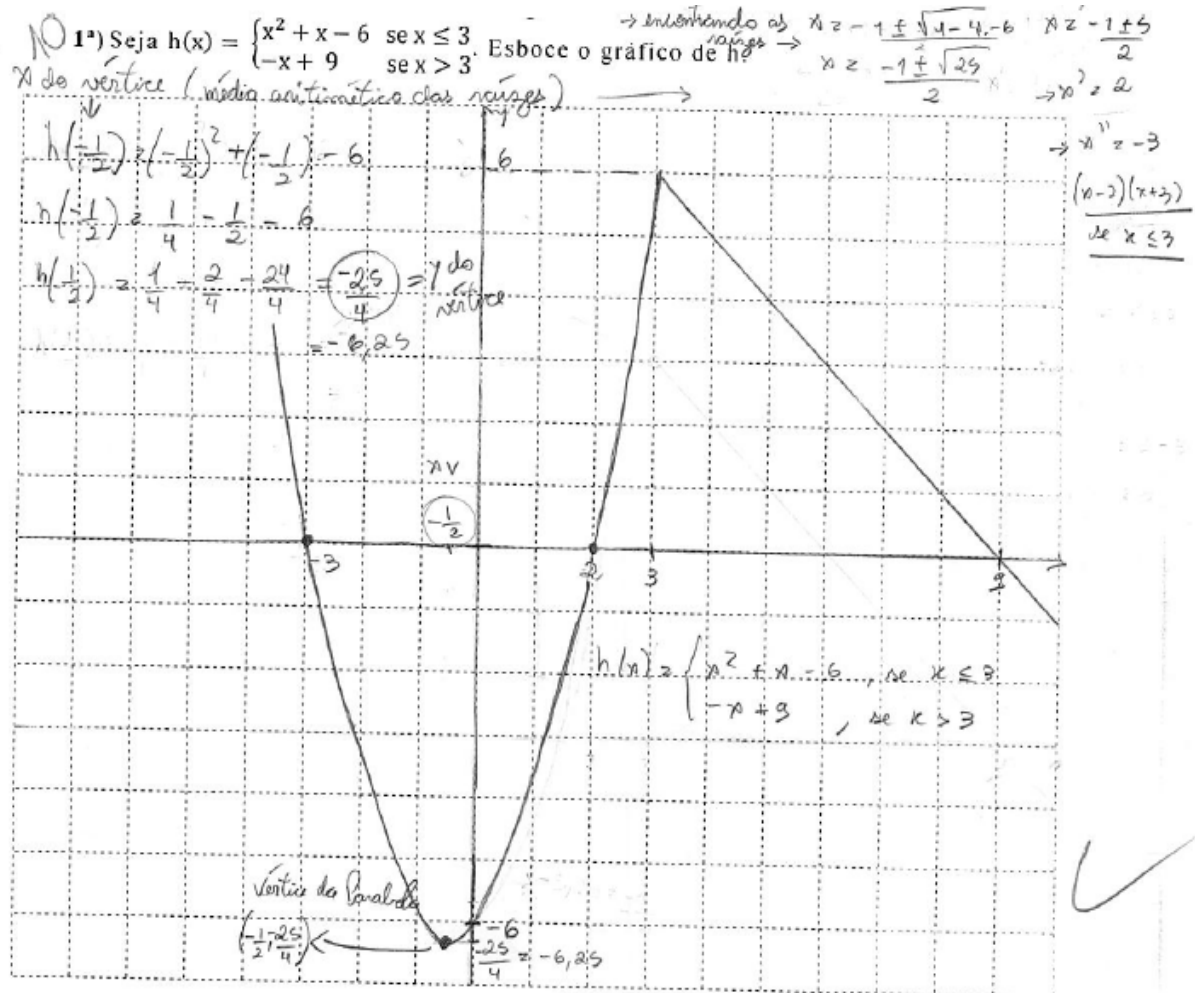 1ª) Seja h(x) = { x² + x − 6 se x ≤ 3
−x + 9 se x > 3 . Esboce o gráfico de h.
→ encontrando as raízes →
x = -1 ± √1-4.-6
2
x = -1 ± √25
2
x = -1 ± 5
2
→ x' = 2
→ x'' = -3
(x-2)(x+3)
se x ≤ 3
x do vértice (média aritimética das raízes) →
h(-1/2) = (-1/2)² + (-1/2) - 6
h(-1/2) = 1/4 - 1/2 - 6
h(-1/2) = 1/4 - 2/4 - 24/4 = -25/4 = y do vértice
= -6,25
y
6
xv
-1/2
-3
2
3
9
h(x) = { x² + x - 6 , se x ≤ 3
-x + 9 , se x > 3
Vértice da Parabola
(-1/2, -25/4) ←
-6
-25/4 = -6,25